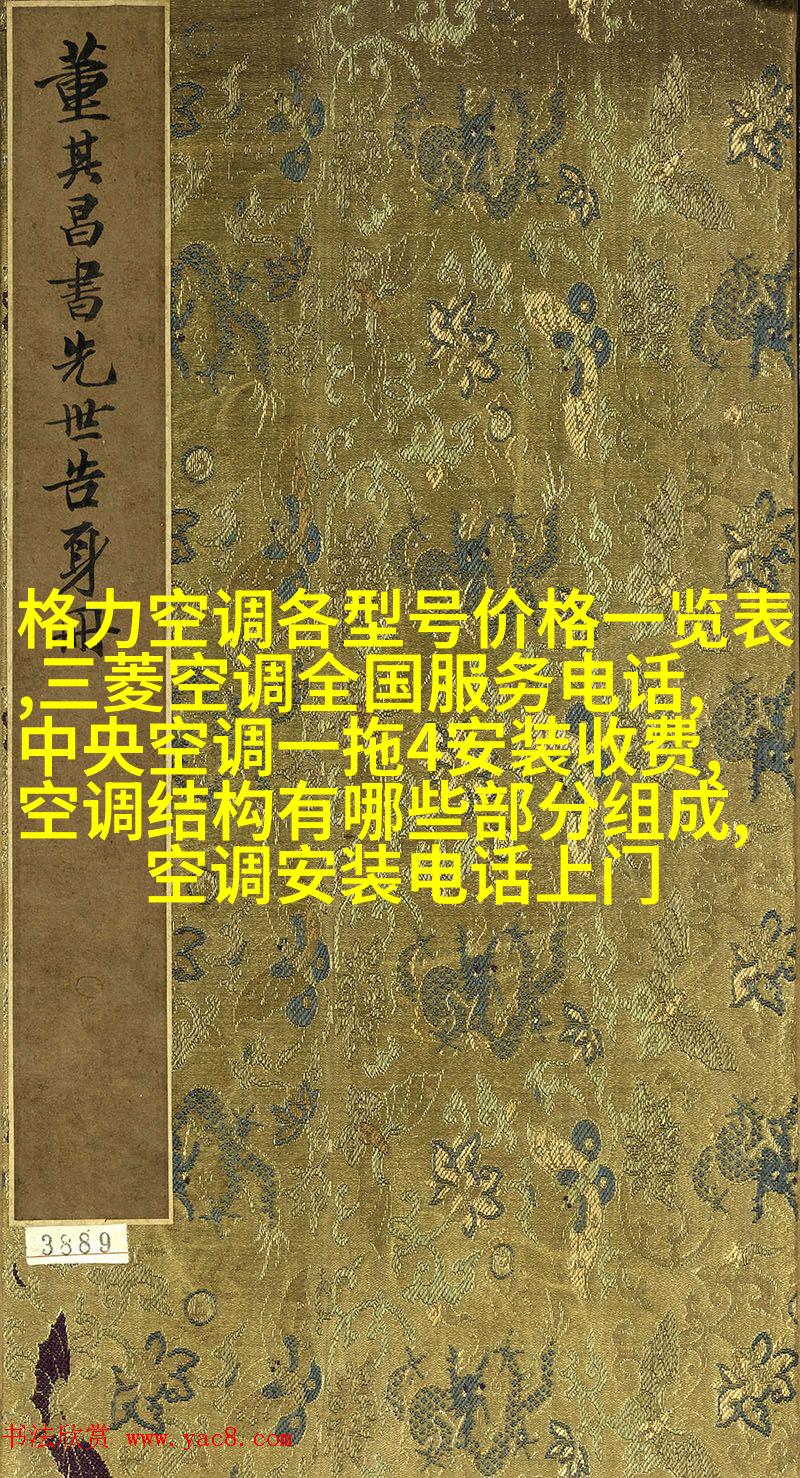 董其昌書先世告身冊
格力空调各型号价格一览表
,三菱空调全国服务电话,
中央空调一拖4安装收费,
空调结构有哪些部分组成,
空调安装电话上门
3889
书法欣赏 www.yac8.com